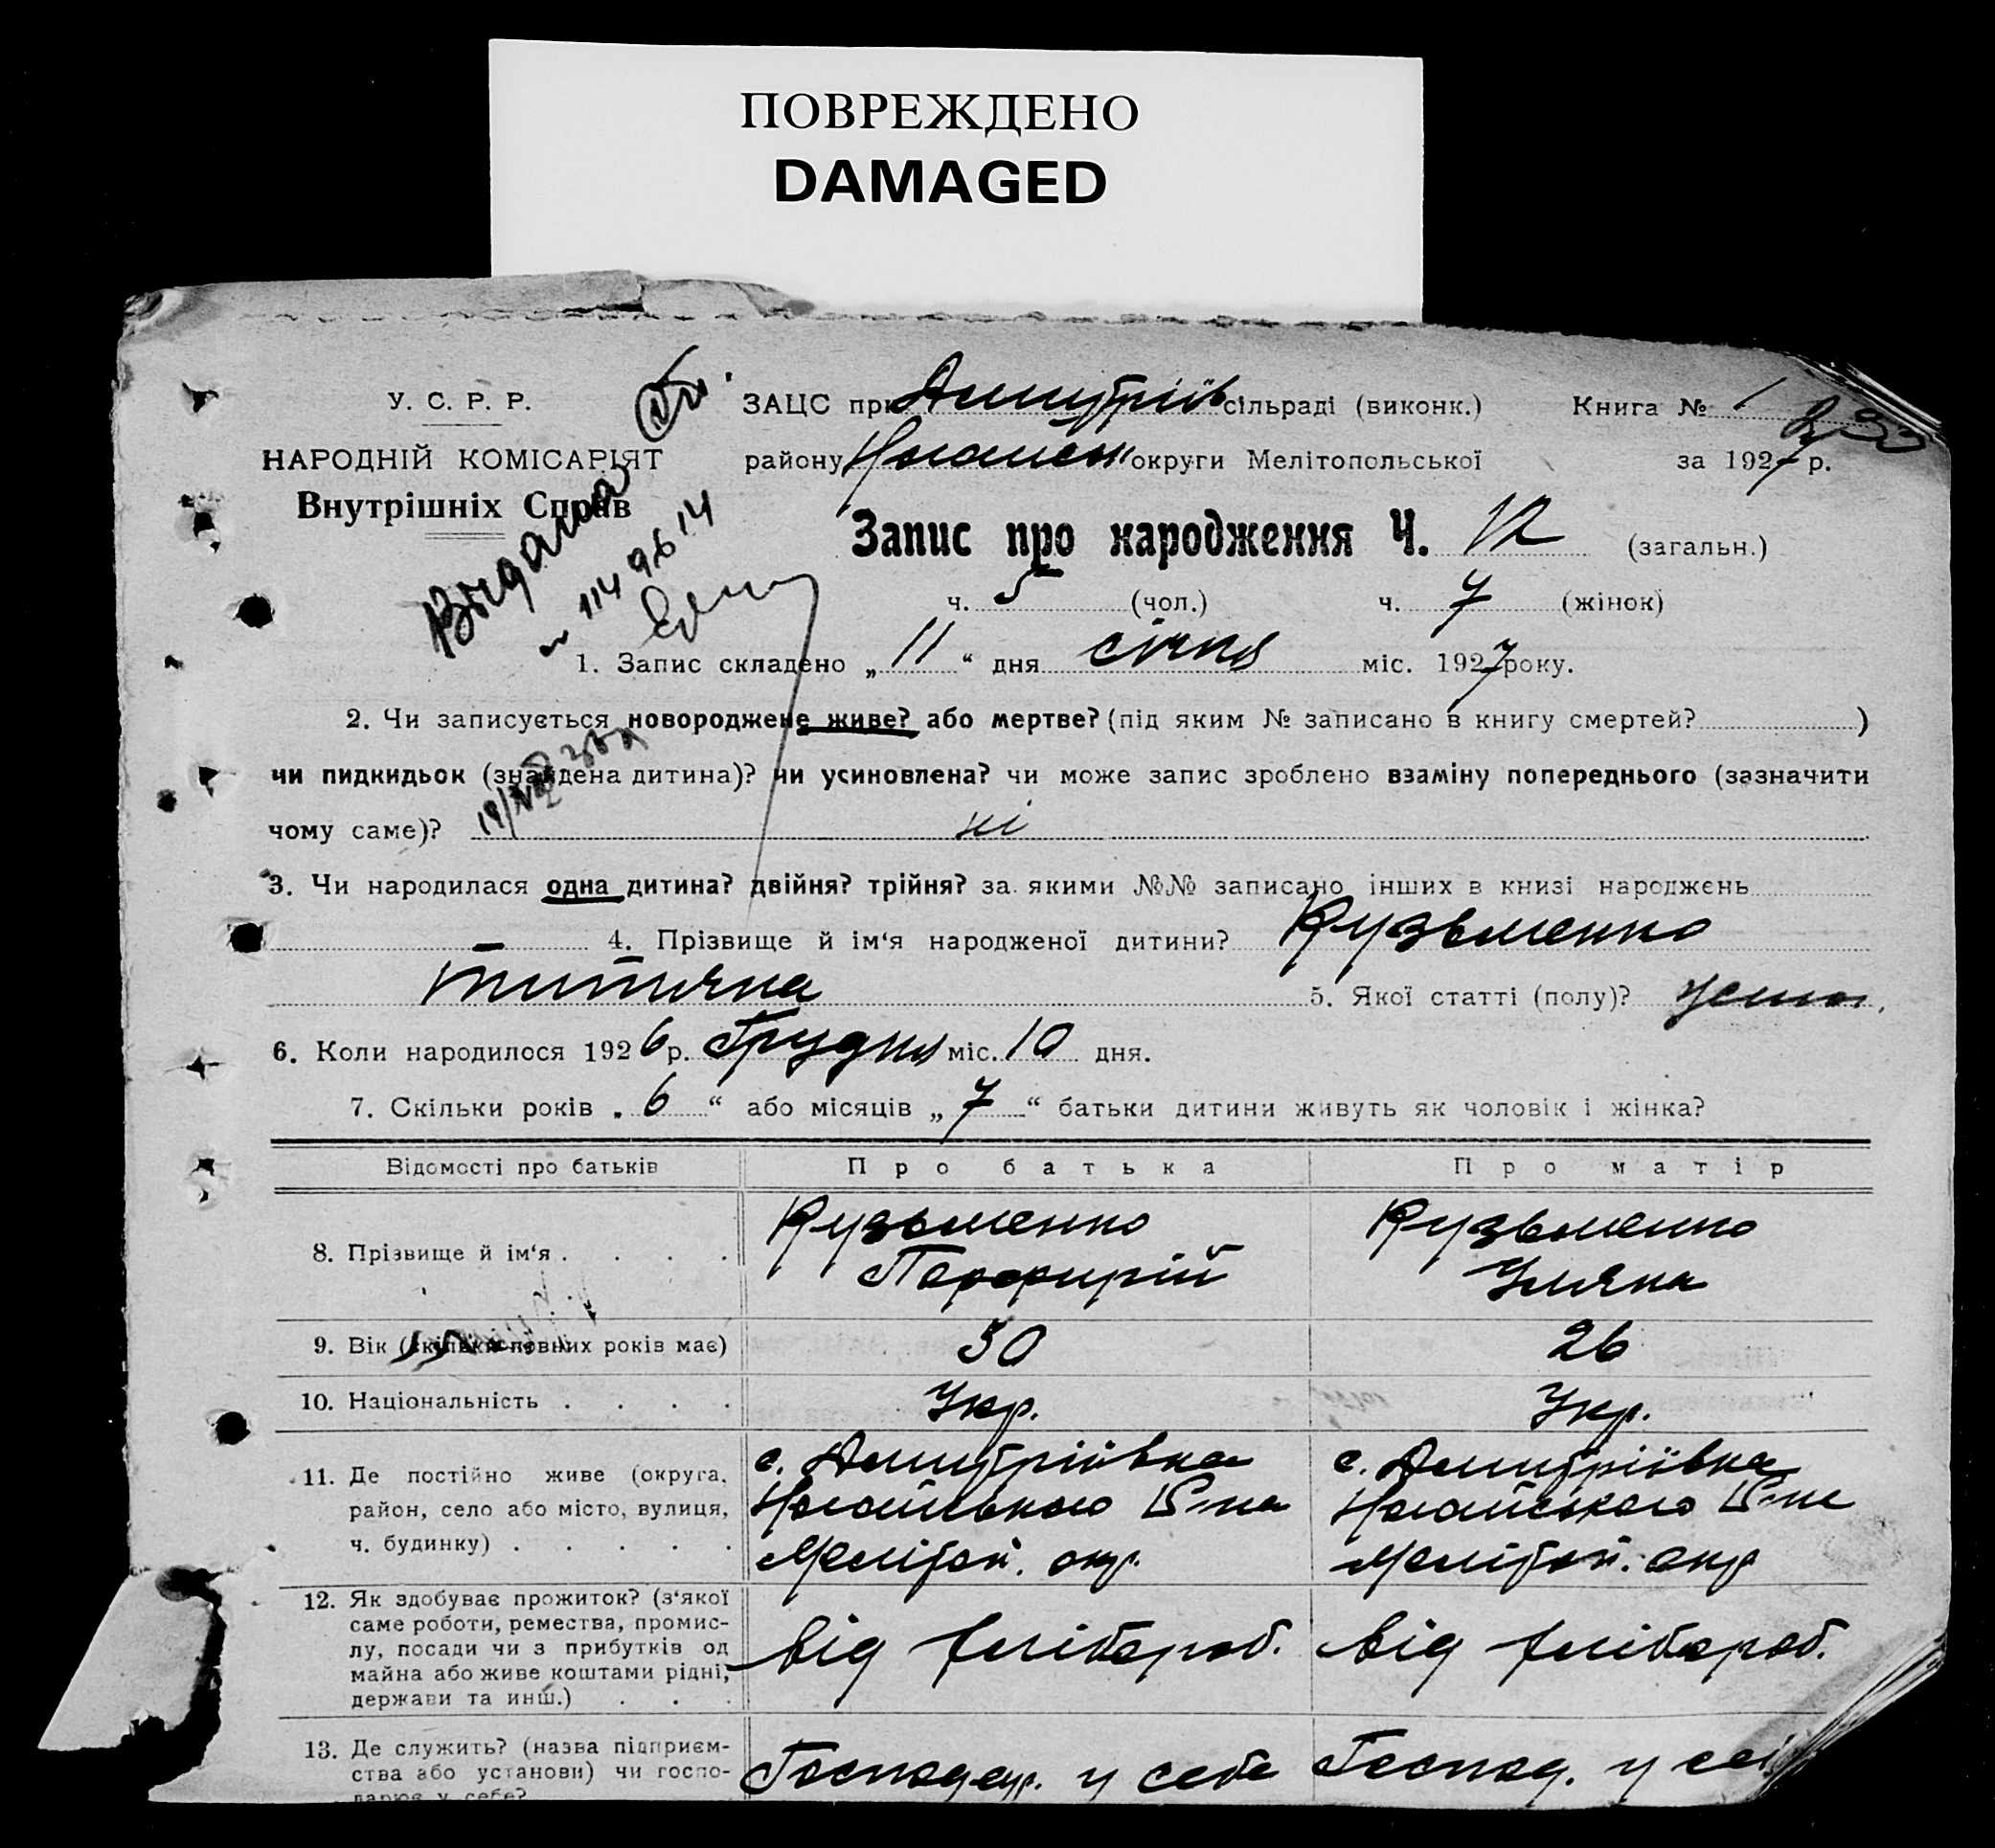 ПОВРЕЖДЕНО
DAMAGED
У. С. Р. Р.
НАРОДНІЙ КОМІСАРІЯТ
Внутрішніх Справ
ЗАЦС при Дмитріїв сільраді (виконк.) Книга № 1
району округи Мелітопольської за 1927 р.
Запис про народження Ч. 12 (загальн.)
ч. 5 (чол.) ч. 7 (жінок)
Видана
1. Запис складено „ 11 “ дня січня міс. 1927 року.
2. Чи записується новороджене живе? або мертве? (під яким № записано в книгу смертей? )
чи пидкидьок (знайдена дитина)? чи усиновлена? чи може запис зроблено взаміну попереднього (зазначити
чому саме)? ні
3. Чи народилася одна дитина? двійня? трійня? за якими №№ записано інших в книзі народжень
— 4. Прізвище й ім‘я народженої дитини? Кузьменко
Титяна 5. Якої статті (полу)?
6. Коли народилося 1926 р. Грудня міс. 10 дня.
7. Скільки років „ 6 “ або місяців „ 7 “ батьки дитини живуть як чоловік і жінка?
Відомості про батьків Про батька Про матір
8. Прізвище й ім‘я . . . . Кузьменко Порфирій Кузьменко Уляна
9. Вік (скільки повних років має) 30 26
10. Національність . . . . Укр. Укр.
11. Де постійно живе (округа, район, село або місто, вулиця, ч. будинку) . . . . . с. Дмитріївка Ногайського Р-на Мелітоп. окр. с. Дмитріївка Ногайського Р-на Мелітоп. окр
12. Як здобуває прожиток? (з‘якої саме роботи, ремества, промислу, посади чи з прибутків од майна або живе коштами рідні, держави та инш.) . . . від хлібороб. від хлібороб.
13. Де служить? (назва підприємства або установи) чи господарює у себе? Господар. у себе Господ. у себ